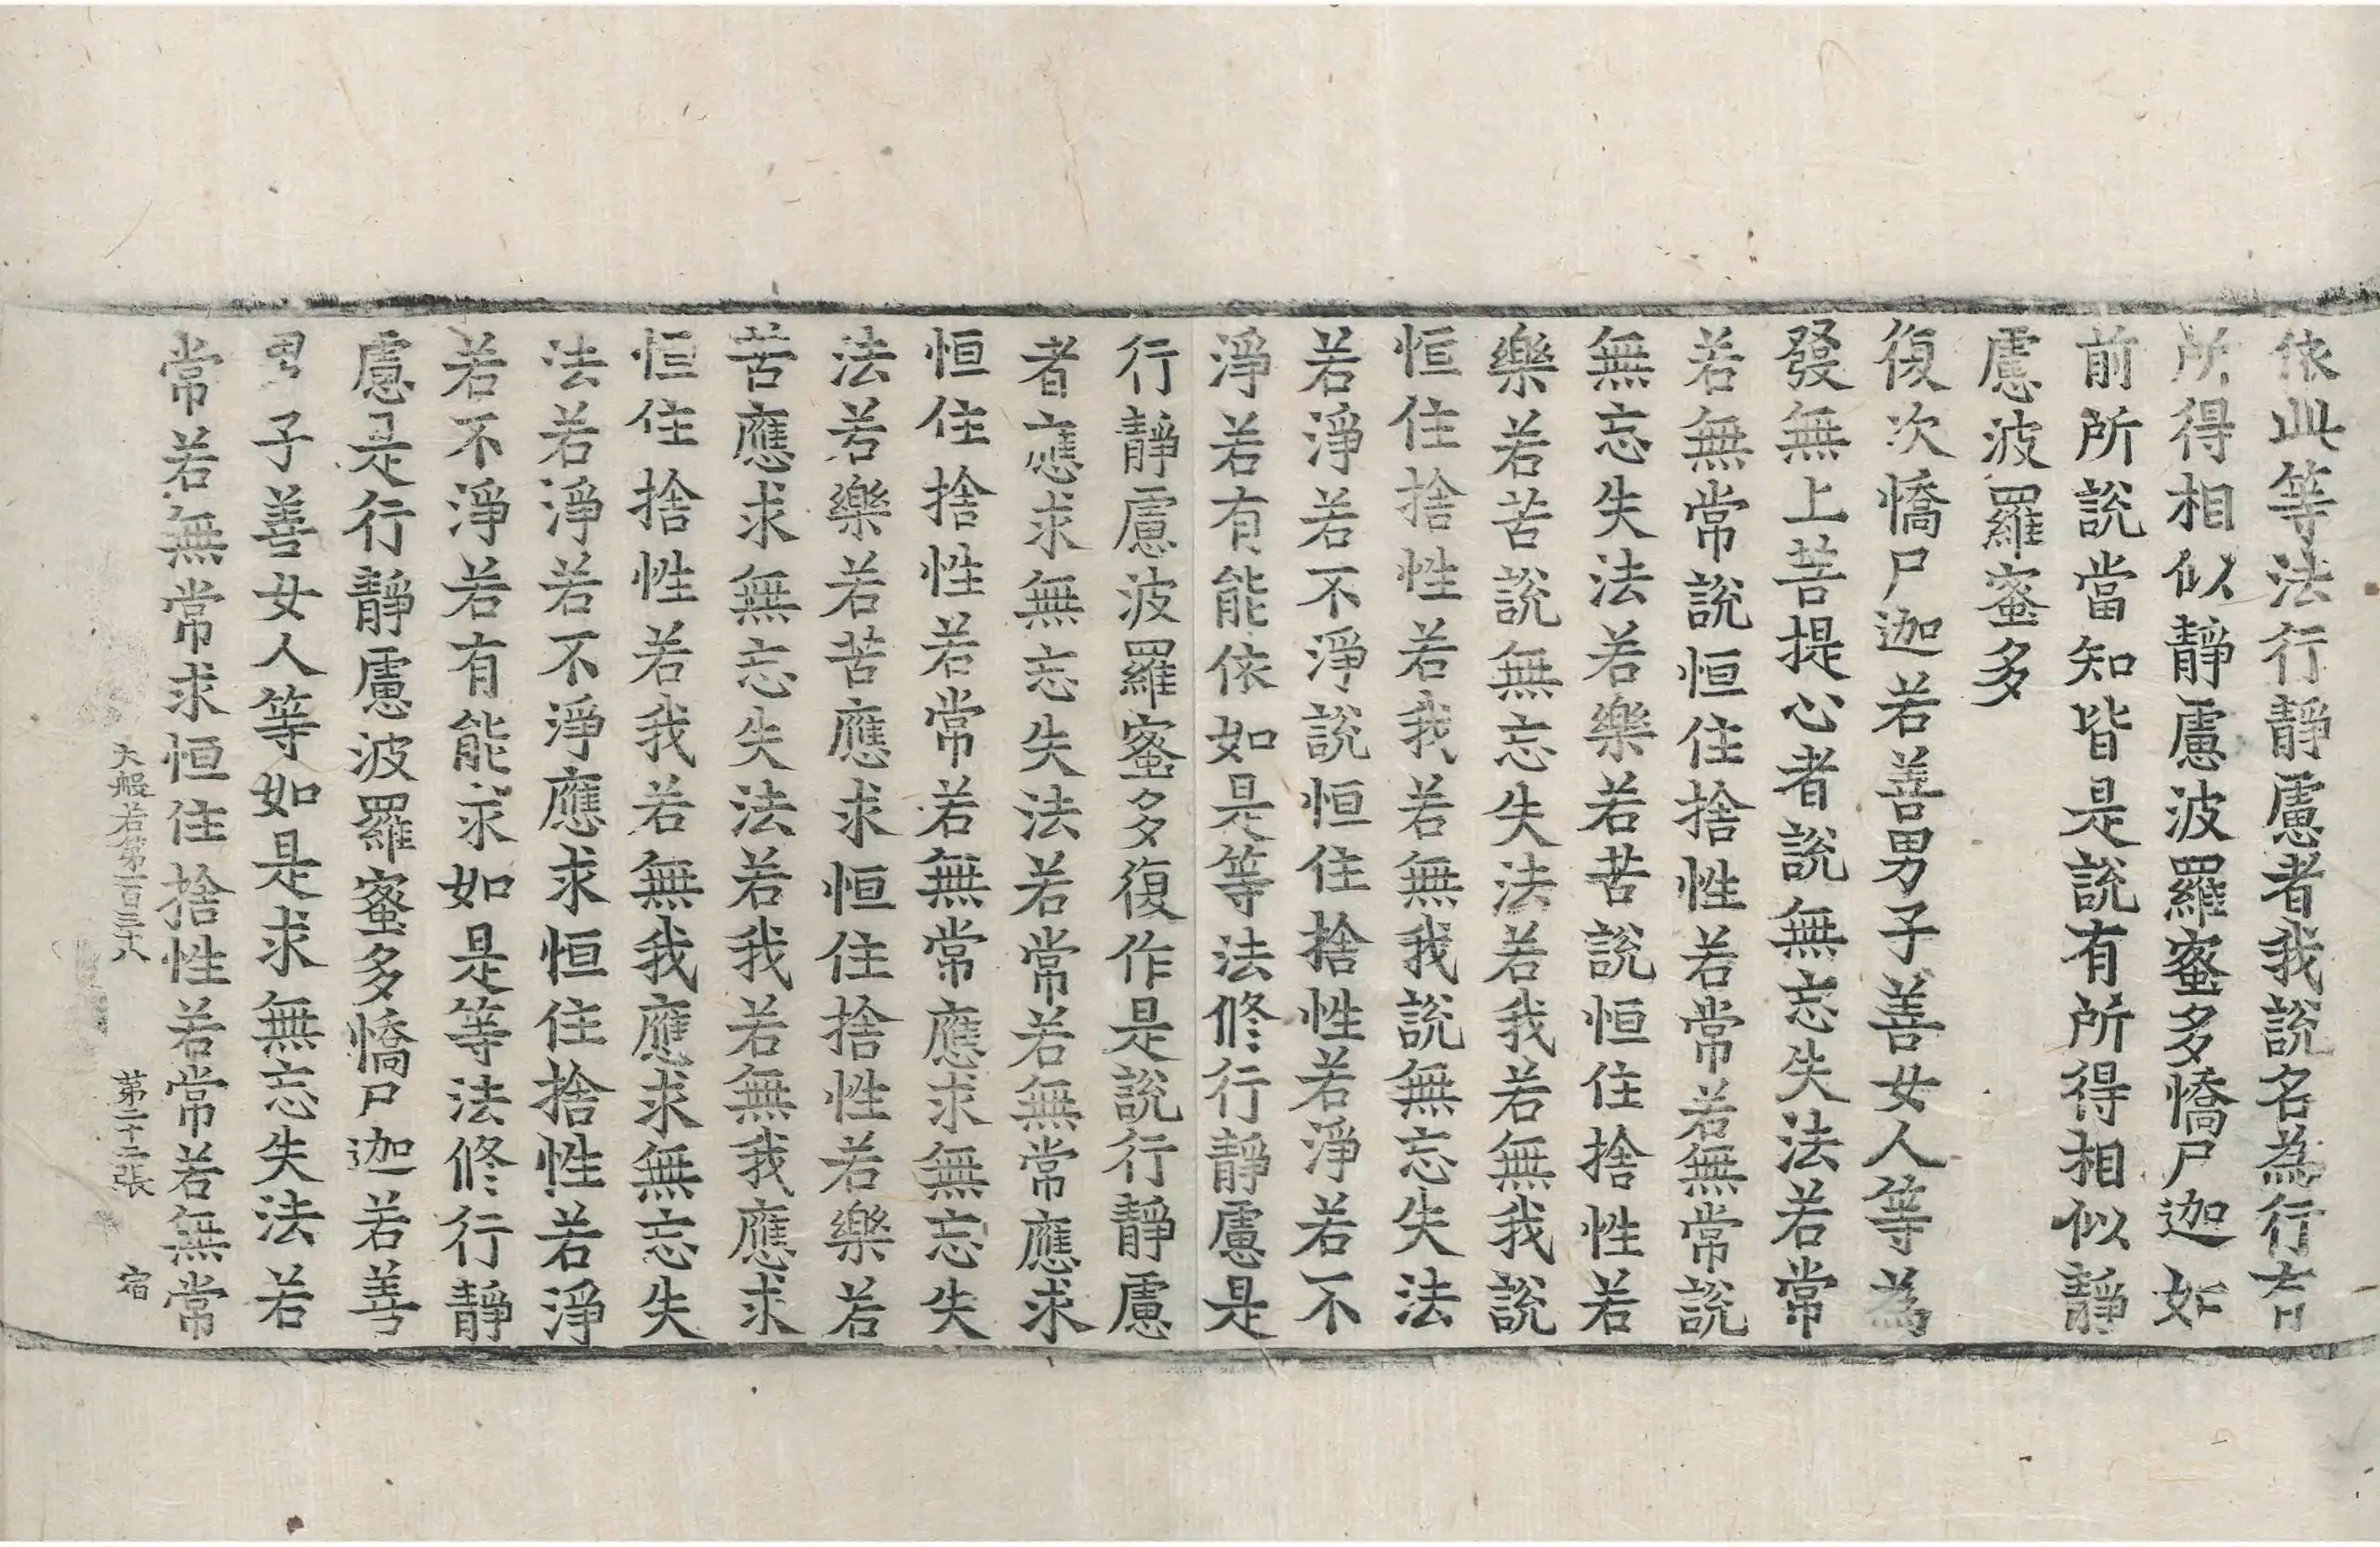 依此等法行靜慮者我說名為行有
所得相似靜慮波羅蜜多憍尸迦如
前所說當知皆是說有所得相似靜
慮波羅蜜多
復次憍尸迦若善男子善女人等為
發無上菩提心者說無忘失法若常
若無常說恒住捨性若常若無常說
無忘失法若樂若苦說恒住捨性若
樂若苦說無忘失法若我若無我說
恒住捨性若我若無我說無忘失法
若淨若不淨說恒住捨性若淨若不
淨若有能依如是等法修行靜慮是
行靜慮波羅蜜多復作是說行靜慮
者應求無忘失法若常若無常應求
恒住捨性若常若無常應求無忘失
法若樂若苦應求恒住捨性若樂若
苦應求無忘失法若我若無我應求
恒住捨性若我若無我應求無忘失
法若淨若不淨應求恒住捨性若淨
若不淨若有能求如是等法修行靜
慮是行靜慮波羅蜜多憍尸迦若善
男子善女人等如是求無忘失法若
常若無常求恒住捨性若常若無常
大般若第一百三十八 第二十二張 宿